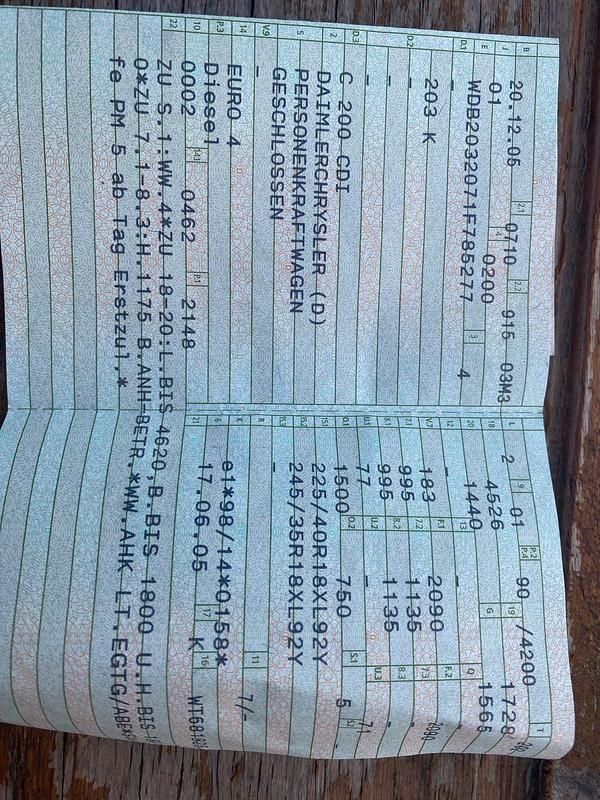 B 20.12.05 2.1 0710 2.2 915 03M3 L 2 9 01 P.2 P.4 90 /4200 T
J 01 4 0200 18 4526 19 1728
E WDB2032071F785277 3 4 20 1440 G 1565
D.1 - 12 - 13 - Q
D.2 203 K V.7 183 F.1 2090 F.2 2090
- 7.1 995 7.2 1135 7.3
- 8.1 995 8.2 1135 8.3
D.3 C 200 CDI U.1 77 U.2 - U.3 71
2 DAIMLERCHRYSLER (D) O.1 1500 O.2 750 S.1 5 S.2 -
5 PERSONENKRAFTWAGEN 15.1 225/40R18XL92Y
GESCHLOSSEN 15.2 245/35R18XL92Y
V.9 - 15.3 -
14 EURO 4 R 11 7/-
P.3 Diesel K e1*98/14*0158*
10 0002 14.1 0462 P.1 2148 6 17.06.05 17 K 16
22 ZU S.1:WW.4*ZU 18-20:L.BIS 4620,B.BIS 1800 U.H.BIS 21
0*ZU 7.1-8.3:H.1175 B.ANH-BETR.*WW.AHK LT.EGTG/ABE*
fe PM 5 ab Tag Erstzul.*